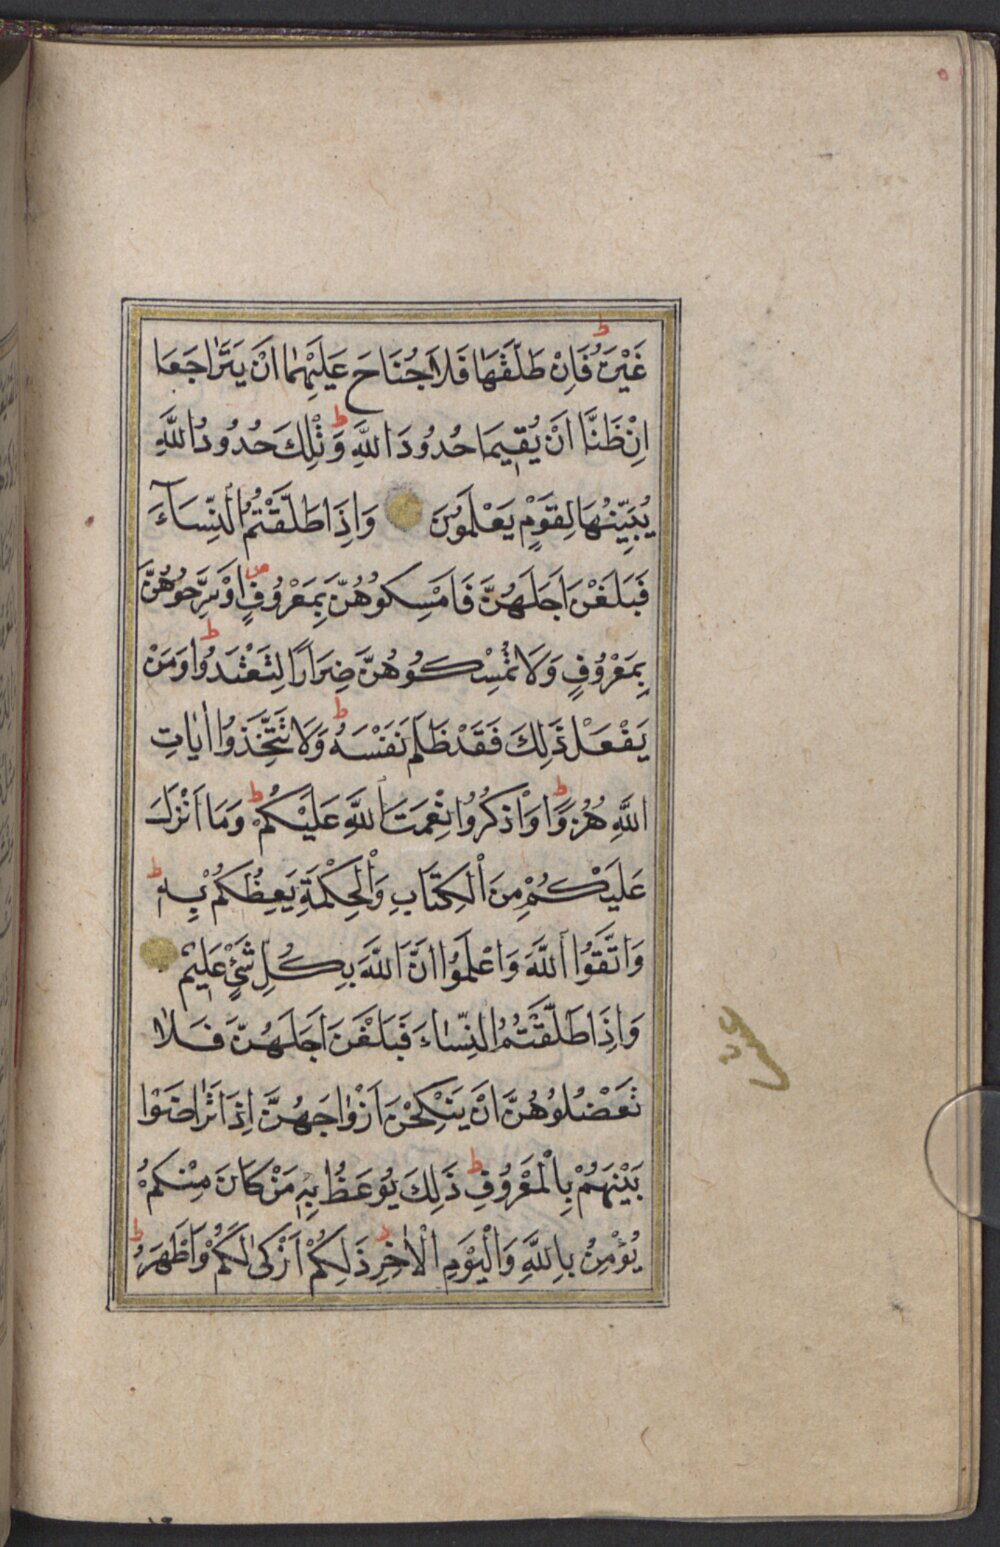 غَيْرَهُ ط فَاِنْ طَلَّقَهَا فَلَا جُنَاحَ عَلَيْهِمَا اَنْ يَتَرَاجَعَا
اِنْ ظَنَّا اَنْ يُقِيمَا حُدُودَ اللّٰهِ ط وَتِلْكَ حُدُودُ اللّٰهِ
يُبَيِّنُهَا لِقَوْمٍ يَعْلَمُونَ وَاِذَا طَلَّقْتُمُ النِّسَآءَ
فَبَلَغْنَ اَجَلَهُنَّ فَاَمْسِكُوهُنَّ بِمَعْرُوفٍ ص اَوْ سَرِّحُوهُنَّ
بِمَعْرُوفٍ وَلَا تُمْسِكُوهُنَّ ضِرَارًا لِتَعْتَدُوا ط وَمَنْ
يَفْعَلْ ذٰلِكَ فَقَدْ ظَلَمَ نَفْسَهُ ط وَلَا تَتَّخِذُوا اٰيَاتِ
اللّٰهِ هُزُوًا ط وَاذْكُرُوا نِعْمَتَ اللّٰهِ عَلَيْكُمْ ط وَمَا اَنْزَلَ
عَلَيْكُمْ مِنَ الْكِتَابِ وَالْحِكْمَةِ يَعِظُكُمْ بِهِ ط
وَاتَّقُوا اللّٰهَ وَاعْلَمُوا اَنَّ اللّٰهَ بِكُلِّ شَيْءٍ عَلِيمٌ
وَاِذَا طَلَّقْتُمُ النِّسَاءَ فَبَلَغْنَ اَجَلَهُنَّ فَلَا
تَعْضُلُوهُنَّ اَنْ يَنْكِحْنَ اَزْوَاجَهُنَّ اِذَا تَرَاضَوْا
بَيْنَهُمْ بِالْمَعْرُوفِ ط ذٰلِكَ يُوعَظُ بِهِ مَنْ كَانَ مِنْكُمْ
يُؤْمِنُ بِاللّٰهِ وَالْيَوْمِ الْاٰخِرِ ط ذٰلِكُمْ اَزْكٰى لَكُمْ وَاَطْهَرُ ط